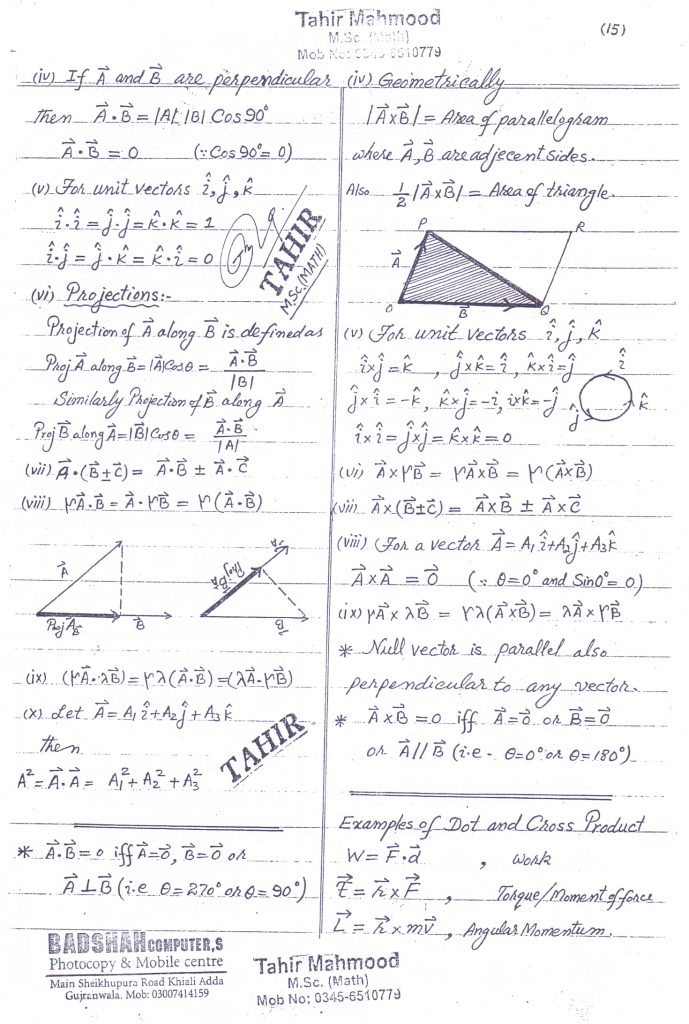 Tahir Mahmood
M.Sc. (Math)
Mob No: 0345-6510779
(15)
(iv) If A⃗ and B⃗ are perpendicular
then A⃗·B⃗ = |A| |B| Cos90°
A⃗·B⃗ = 0 (∵Cos90°=0)
(v) For unit vectors î, ĵ, k̂
î·î = ĵ·ĵ = k̂·k̂ = 1
î·ĵ = ĵ·k̂ = k̂·î = 0
TAHIR
M.SC.(MATH)
(vi) Projections:-
Projection of A⃗ along B⃗ is defined as
Proj A⃗ along B⃗ = |A⃗|Cosθ = A⃗·B⃗ / |B|
Similarly Projection of B⃗ along A⃗
Proj B⃗ along A⃗ = |B⃗|Cosθ = A⃗·B⃗ / |A|
(vii) A⃗·(B⃗±C⃗) = A⃗·B⃗ ± A⃗·C⃗
(viii) γA⃗·B⃗ = A⃗·γB⃗ = γ(A⃗·B⃗)
A⃗
Proj A⃗B⃗
B⃗
(ix) (γA⃗·λB⃗) = γλ(A⃗·B⃗) = (λA⃗·γB⃗)
(x) Let A⃗ = A₁î + A₂ĵ + A₃k̂
then
A² = A⃗·A⃗ = A₁² + A₂² + A₃²
TAHIR
* A⃗·B⃗ = 0 iff A⃗=o⃗, B⃗=o⃗ or
A⃗⊥B⃗ (i.e θ=270° or θ=90°)
(iv) Geometrically
|A⃗xB⃗| = Area of parallelogram
where A⃗, B⃗ are adjecent sides.
Also ½|A⃗xB⃗| = Area of triangle.
P R
A⃗
O B⃗ Q
(v) For unit vectors î, ĵ, k̂
îxĵ = k̂ , ĵxk̂ = î , k̂xî = ĵ
î
ĵxî = -k̂, k̂xĵ = -î, îxk̂ = -ĵ
ĵ k̂
îxî = ĵxĵ = k̂xk̂ = 0
(vi) A⃗xγB⃗ = γA⃗xB⃗ = γ(A⃗xB⃗)
(vii) A⃗x(B⃗±C⃗) = A⃗xB⃗ ± A⃗xC⃗
(viii) For a vector A⃗ = A₁î+A₂ĵ+A₃k̂
A⃗xA⃗ = O⃗ (∵ θ=0° and Sin0°=0)
(ix) γA⃗ x λB⃗ = γλ(A⃗xB⃗) = λA⃗xγB⃗
* Null vector is parallel also
perpendicular to any vector.
* A⃗xB⃗ = 0 iff A⃗=o⃗ or B⃗=o⃗
or A⃗//B⃗ (i.e- θ=0° or θ=180°)
Examples of Dot and Cross Product
W = F⃗·d⃗ , work
τ⃗ = r⃗ x F⃗ , Torque/Moment of force
L⃗ = r⃗ x mv⃗ , Angular Momentum.
BADSHAH COMPUTER,S
Photocopy & Mobile centre
Main Sheikhupura Road Khiali Adda
Gujranwala. Mob: 03007414159
Tahir Mahmood
M.Sc. (Math)
Mob No: 0345-6510779